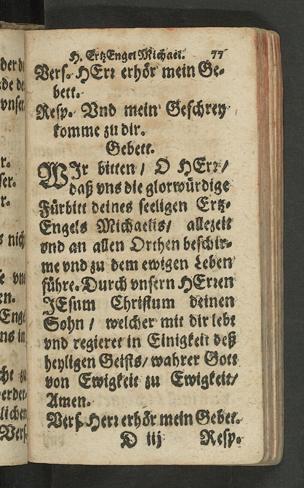 H. ErtzEngel Michael. 77
Vers. HErr erhör mein Ge-
bett.
Resp. Vnd mein Geschrey
komme zu dir.
Gebett.
WIr bitten / O HErr /
daß vns die glorwürdige
Fürbitt deines seeligen Ertz-
Engels Michaelis / allezeit
vnd an allen Orthen beschir-
me vnd zu dem ewigen Leben
führe. Durch vnsern HErren
JEsum Christum deinen
Sohn / welcher mit dir lebt
vnd regieret in Einigkeit deß
heyligen Geists / wahrer Gott
von Ewigkeit zu Ewigkeit /
Amen.
Vers. Herr erhör mein Gebet.
D iij Resp.